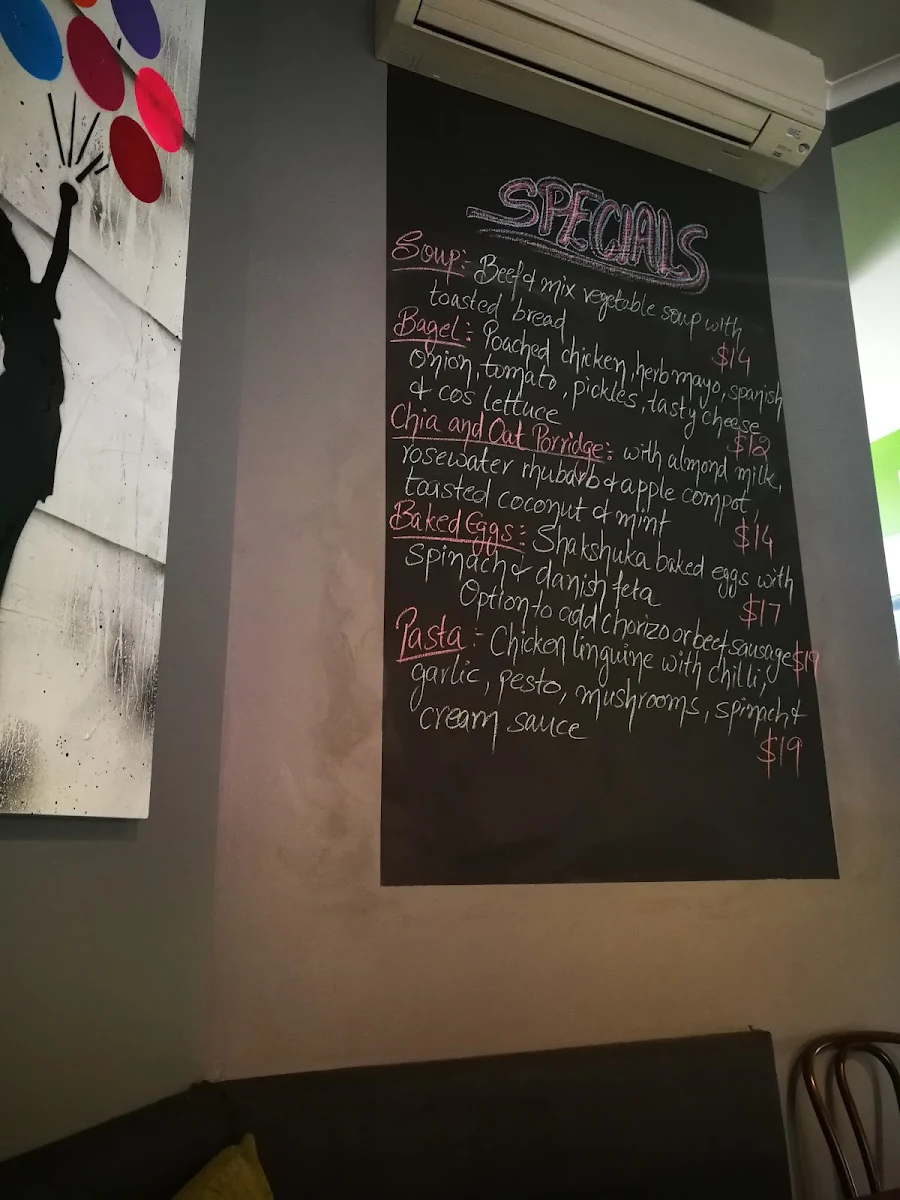 SPECIALS
Soup:- Beef & mix vegetable soup with
toasted bread
$14
Bagel:- Poached chicken, herb mayo, spanish
onion, tomato, pickles, tasty cheese
& cos lettuce
$12
Chia and Oat Porridge:- with almond milk,
rosewater rhubarb & apple compot,
toasted coconut & mint
$14
Baked Eggs:- Shakshuka baked eggs with
spinach & danish feta
$17
Option to add chorizo or beef sausage $19
Pasta:- Chicken linguine with chilli,
garlic, pesto, mushrooms, spinach &
cream sauce
$19